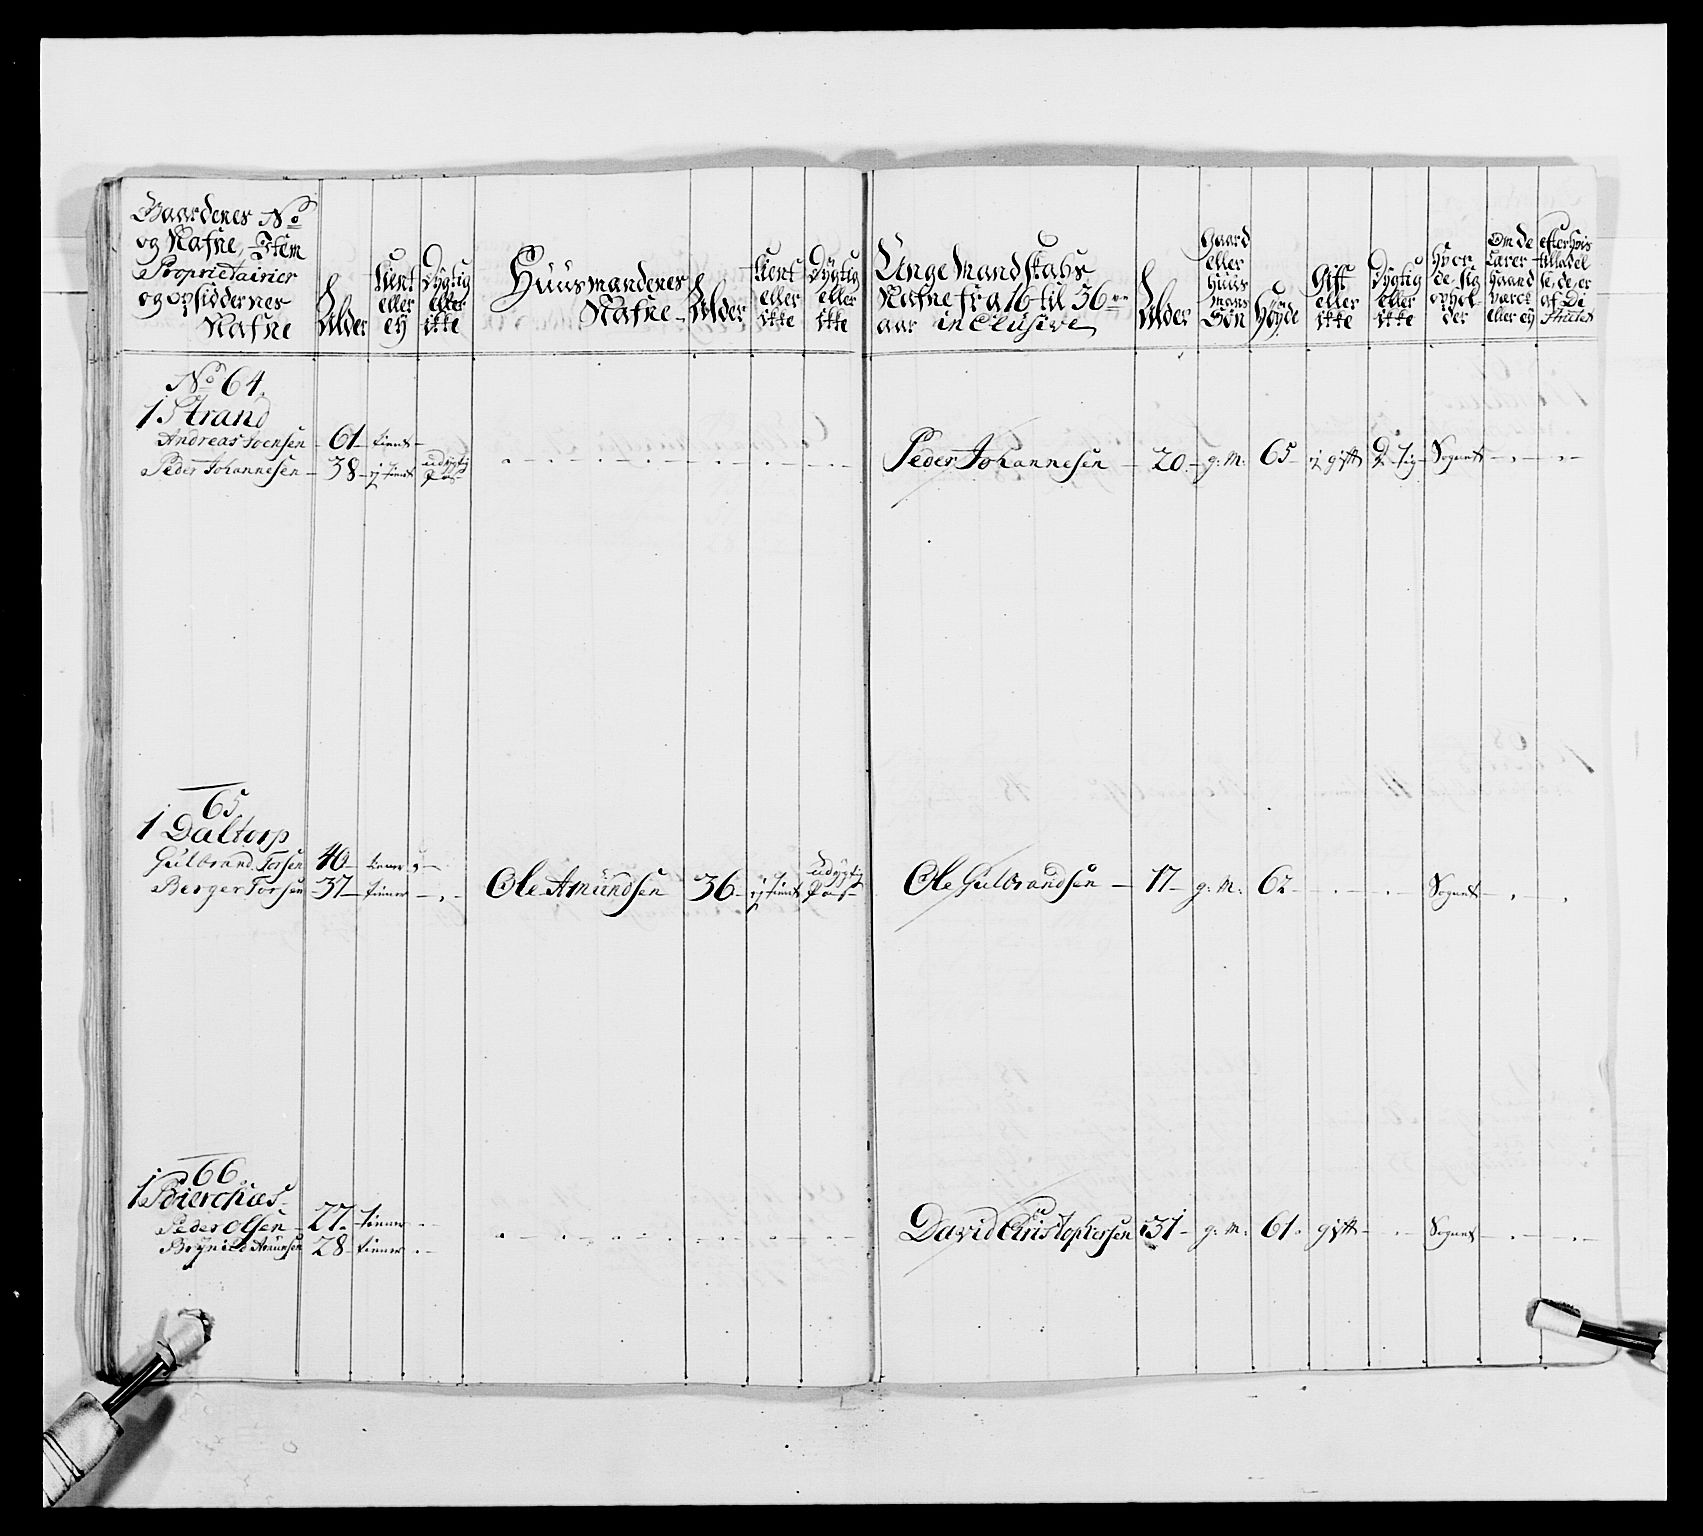 Gaardenes No
og Nafne, Item
Proprietairier
og opsiddernes
Nafne
Alder
tient
eller
ey
Dygtig
eller
ikke
Huusmandenes
Nafne
Alder
tient
eller
ikke
Dygtig
eller
ikke
Unge Mandskabs
Nafne fra 16 til 36
aar inclusive
Alder
Gaard
eller
Huus
mans
Søn
Høyde
Gift
eller
ikke
Dygtig
eller
ikke
Hvor
de sig
ophol
der
Om de
Lærer
Haand
værck
eller ey
efter hvis
tilladel
se, de, er
af Di
strictet
No 64.
1 Strand
Andreas Soensen - 61 - tient -
Peder Johannesen - 38 - ej tient udygtig Pas Peder Johannesen - 20 - g: M: 65 - ej gift Dygtig Sognet
65
1 Daltorp
Gulbrand Torsen 40 - tiener
Berger Torsen 37 - tiener Ole Amundsen 36 - ej tient udygtig Pas Ole Gulbrandsen - 17 - g: M: 62 - Sognet
66
1
Peder Olsen - 27 - tiener
Amunsen 28 - tiener David Christophersen 31 - g: M: 61. gift - Sognet